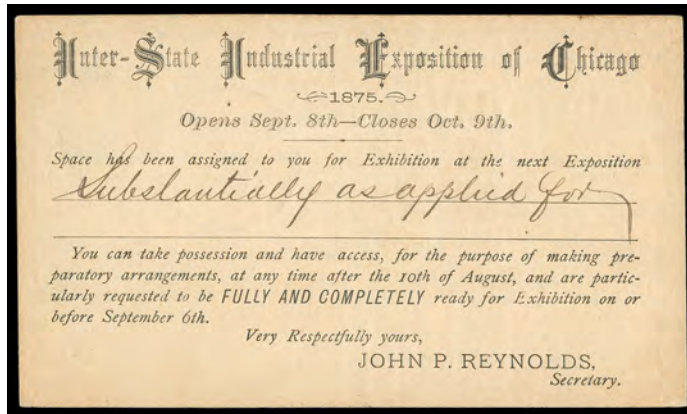 Inter-State Industrial Exposition of Chicago
1875.
Opens Sept. 8th—Closes Oct. 9th.
Space has been assigned to you for Exhibition at the next Exposition
Substantially as applied for
You can take possession and have access, for the purpose of making pre-
paratory arrangements, at any time after the 10th of August, and are partic-
ularly requested to be FULLY AND COMPLETELY ready for Exhibition on or
before September 6th.
Very Respectfully yours,
JOHN P. REYNOLDS,
Secretary.